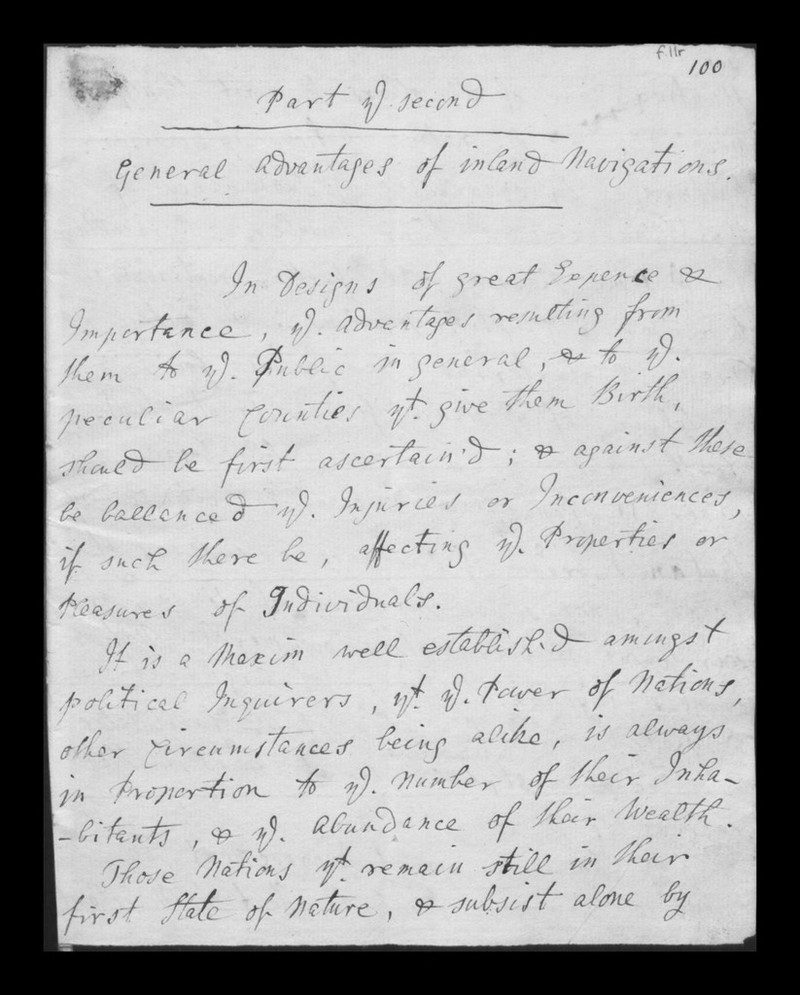 f.11r
100
Part ye. second
General advantages of inland Navigations.
In Designs of great Expence &
Importance, ye. advantages resulting from
them to ye. Public in general, & to ye.
peculiar Counties yt. give them Birth,
should be first ascertain'd; & against these
be ballanced ye. Injuries or Inconveniences,
if such there be, affecting ye. Properties or
Pleasures of Individuals.
It is a Maxim well establish'd amongst
political Inquirers, yt. ye. Power of Nations,
other Circumstances being alike, is always
in Proportion to ye. Number of their Inha-
-bitants, & ye. abundance of their Wealth.
Those Nations yt. remain still in their
first State of Nature, & subsist alone by